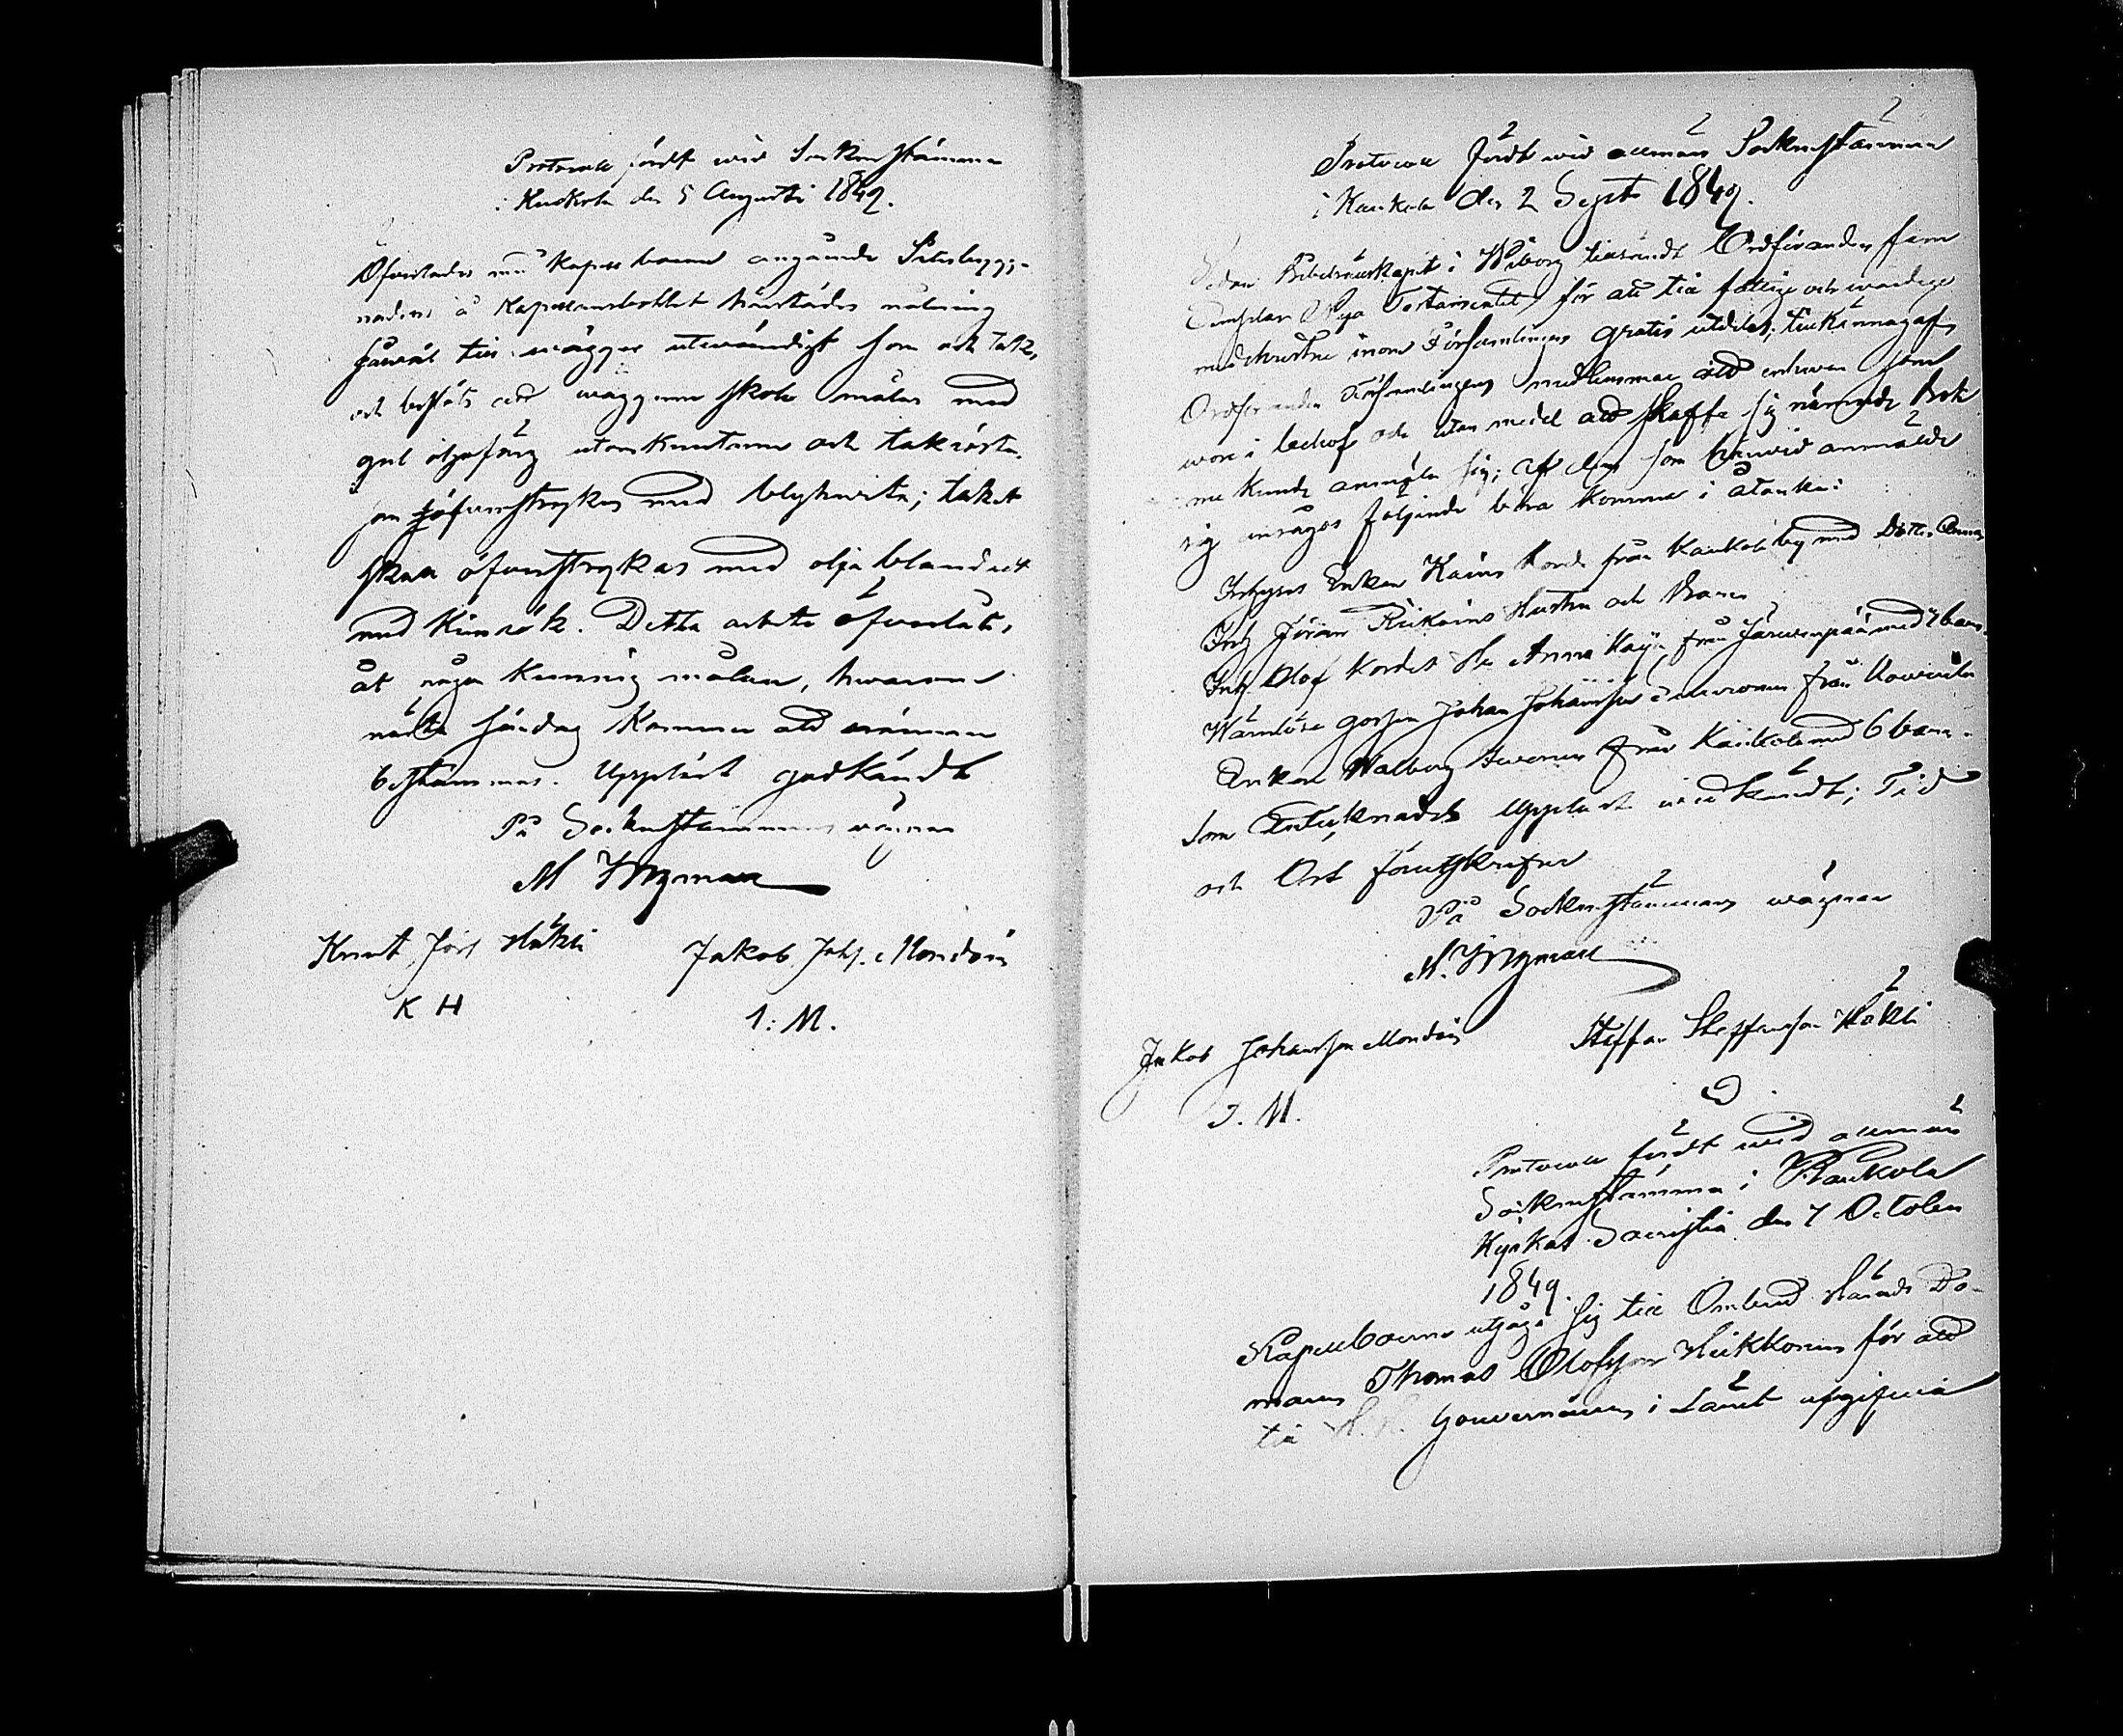 Protocoll fördt wid Sockenstämma
i Kaukola den 5 Augusti 1849.
Öfverlades med Kapellboerne angående Sätesbygg-
nadens å Kapellansbohlet härstädes målning
såwäl till wäggar utwändigt som och tak,
och beslöts att wäggarne skola målas med
gul oljefärg utom knutarne och takrösten
som öfverstrykes med blyhwitt; taket
skall öfverstrykas med olja blandadt
med kimrök. Detta arbete öfverläts
åt någon kunnig målare, hwarom
nästa söndag kommer att närmare
bestämmas. Uppläst godkändt
På Sockenstämmans wägnar
M Ingman
Knut Jörs Häkli Jakob Johs. Mondoin
K H I: M.
2
Protocoll fördt wid allmän Sockenstämma
i Kaukola den 2 Sept 1849.
Sedan Bibelsällskapet i Wiborg tillsändt Ordföranden fem
Exemplar Nya Testamentet för att till fattige och wärdige
medchristne inom Församlingen gratis utdelas, tillkännagaf
Ordföranden Församlingens medlemmar att enhwar som
wore i behof och utan medel att skaffa sig nämnde Bok
nu kunde anmäla sig; af dem som härwid anmälde
sig ansågos följande böra komma i åtanke:
Inhyses Enkan Karin Kordi från Kaukola by med Dotter Anna
Inh Jöran Riikoins Hustru och Barn
Inh Olof Kordes Hu Anna Kaija från Järwenpää med 2 barn.
Wärnlöse gossen Johan Johansson från
Enkan Walborg från Kaukola med 6 barn.
Som Antecknades Upplästes widkändt; Tid
och Ort föreskrefne
På Sockenstämmans wägnar
M. Ingman
Jakob Johansson Mondoin Steffan Steffansson Häkli
I. M.
Protocoll fördt wid allmän
Sockenstämma i Kaukola
Kyrkas Sacristia den 7 October
1849.
Kapellboerne utsågo sig till Ombud Härads Do-
maren Thomas Olofsson Heikkonen för att
till H. H. Gouverneuren i Länet afgifwa